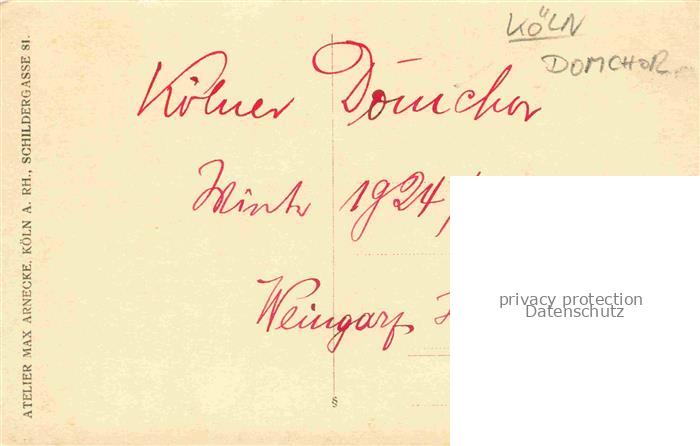 KÖLN
DOMCHOR.
Kölner Domchor
Winter 1924/
Weingarf
privacy protection
Datenschutz
§
ATELIER MAX ARNECKE, KÖLN A. RH., SCHILDERGASSE 81.